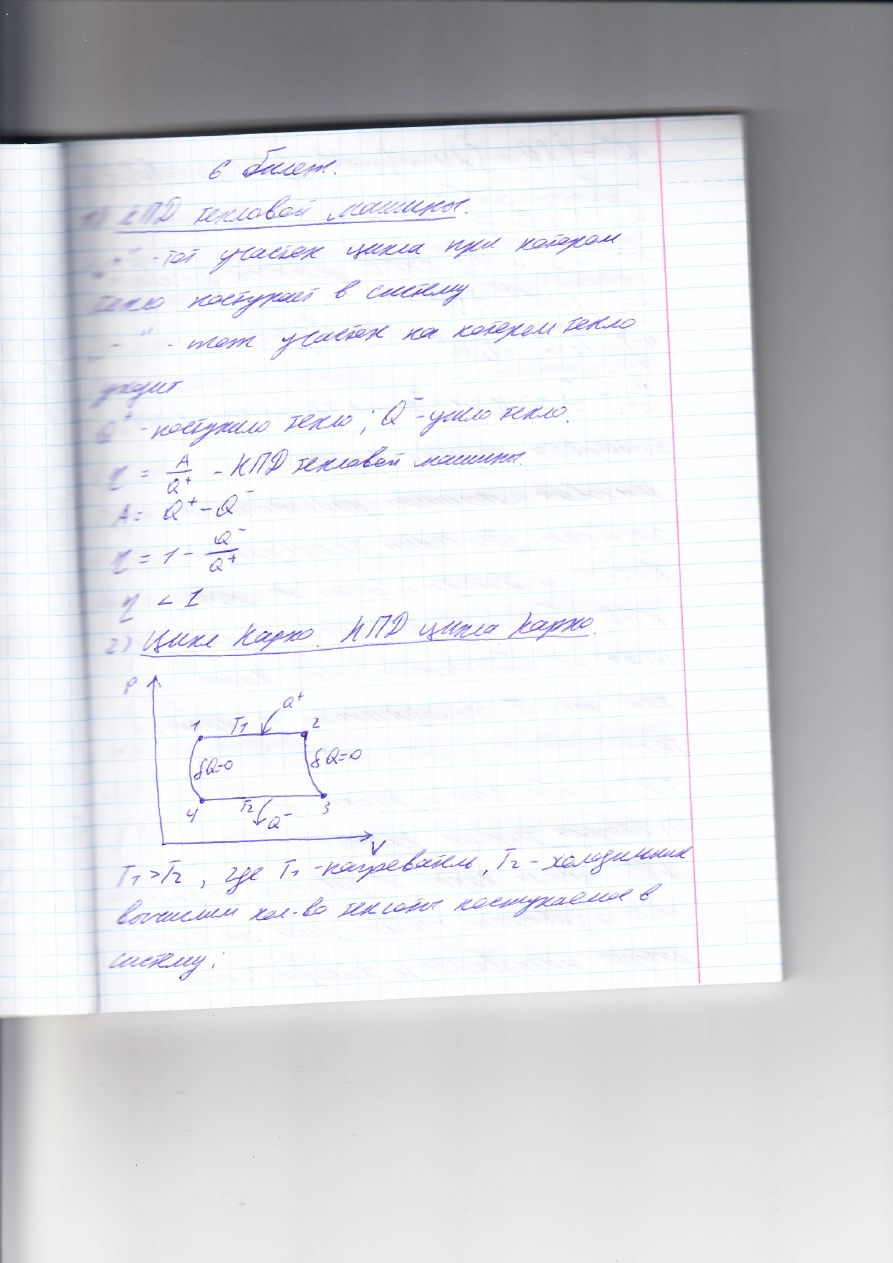 6 билет.
КПД тепловой машины.
"-" - тот участок цикла при котором
тепло поступает в систему
"-" - тот участок на котором тепло
уходит
Q⁺ - поступило тепло; Q⁻ - ушло тепло.
η = A/Q⁺ - КПД тепловой машины.
A = Q⁺ - Q⁻
η = 1 - Q⁻/Q⁺
η < 1
2) Цикл Карно. КПД цикла Карно.
P
Q⁺
1 T₁ 2
δQ=0 δQ=0
4 T₂ 3
Q⁻
V
T₁ > T₂, где T₁ - нагреватель, T₂ - холодильник
вычислим кол-во теплоты поступаемое в
систему: